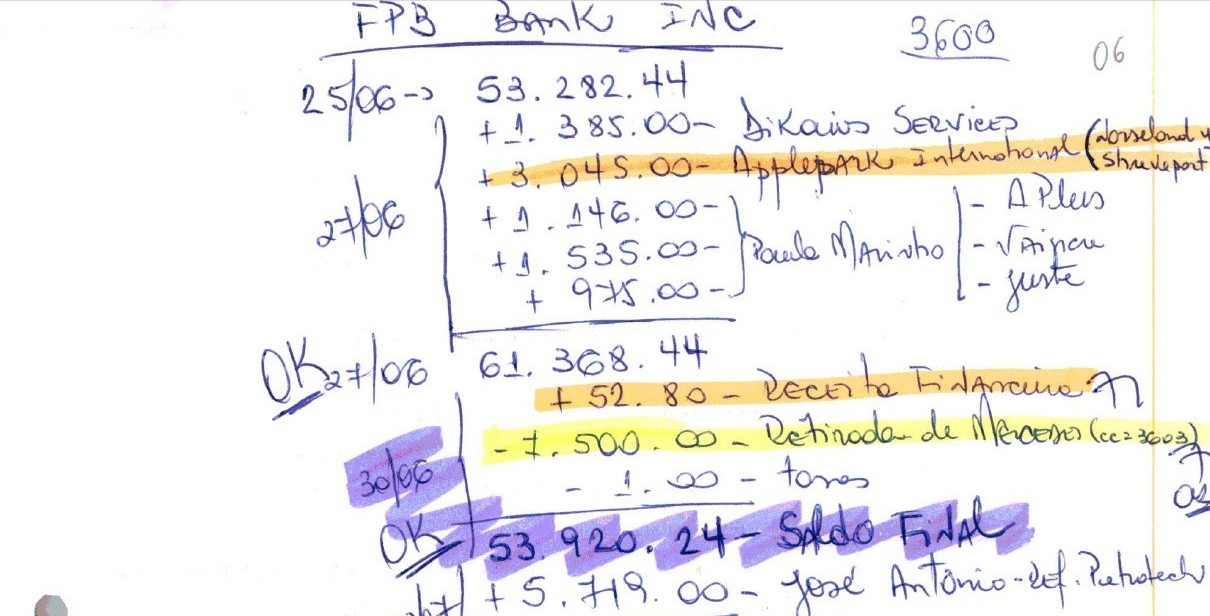 FPB BANK INC
3600
06
25/06-> 53.282.44
+1.385.00- Dikaios SERVICES
+3.045.00- ApplepARK International (Norseland
Shreveport
27/06
+1.146.00-
+1.535.00- Paula MArinho
+ 975.00-
- A Plus
-
- Juste
OK 27/06 61.368.44
+ 52.80 - RECEita FinAnceira
30/06
-7.500.00 - Retirada de MERCEDES (cc=3603)
- 1.00 - taxas
OK 53 920.24 - SAldo FiNAL
+ 5.719.00 - José António - Ref. Petrotech